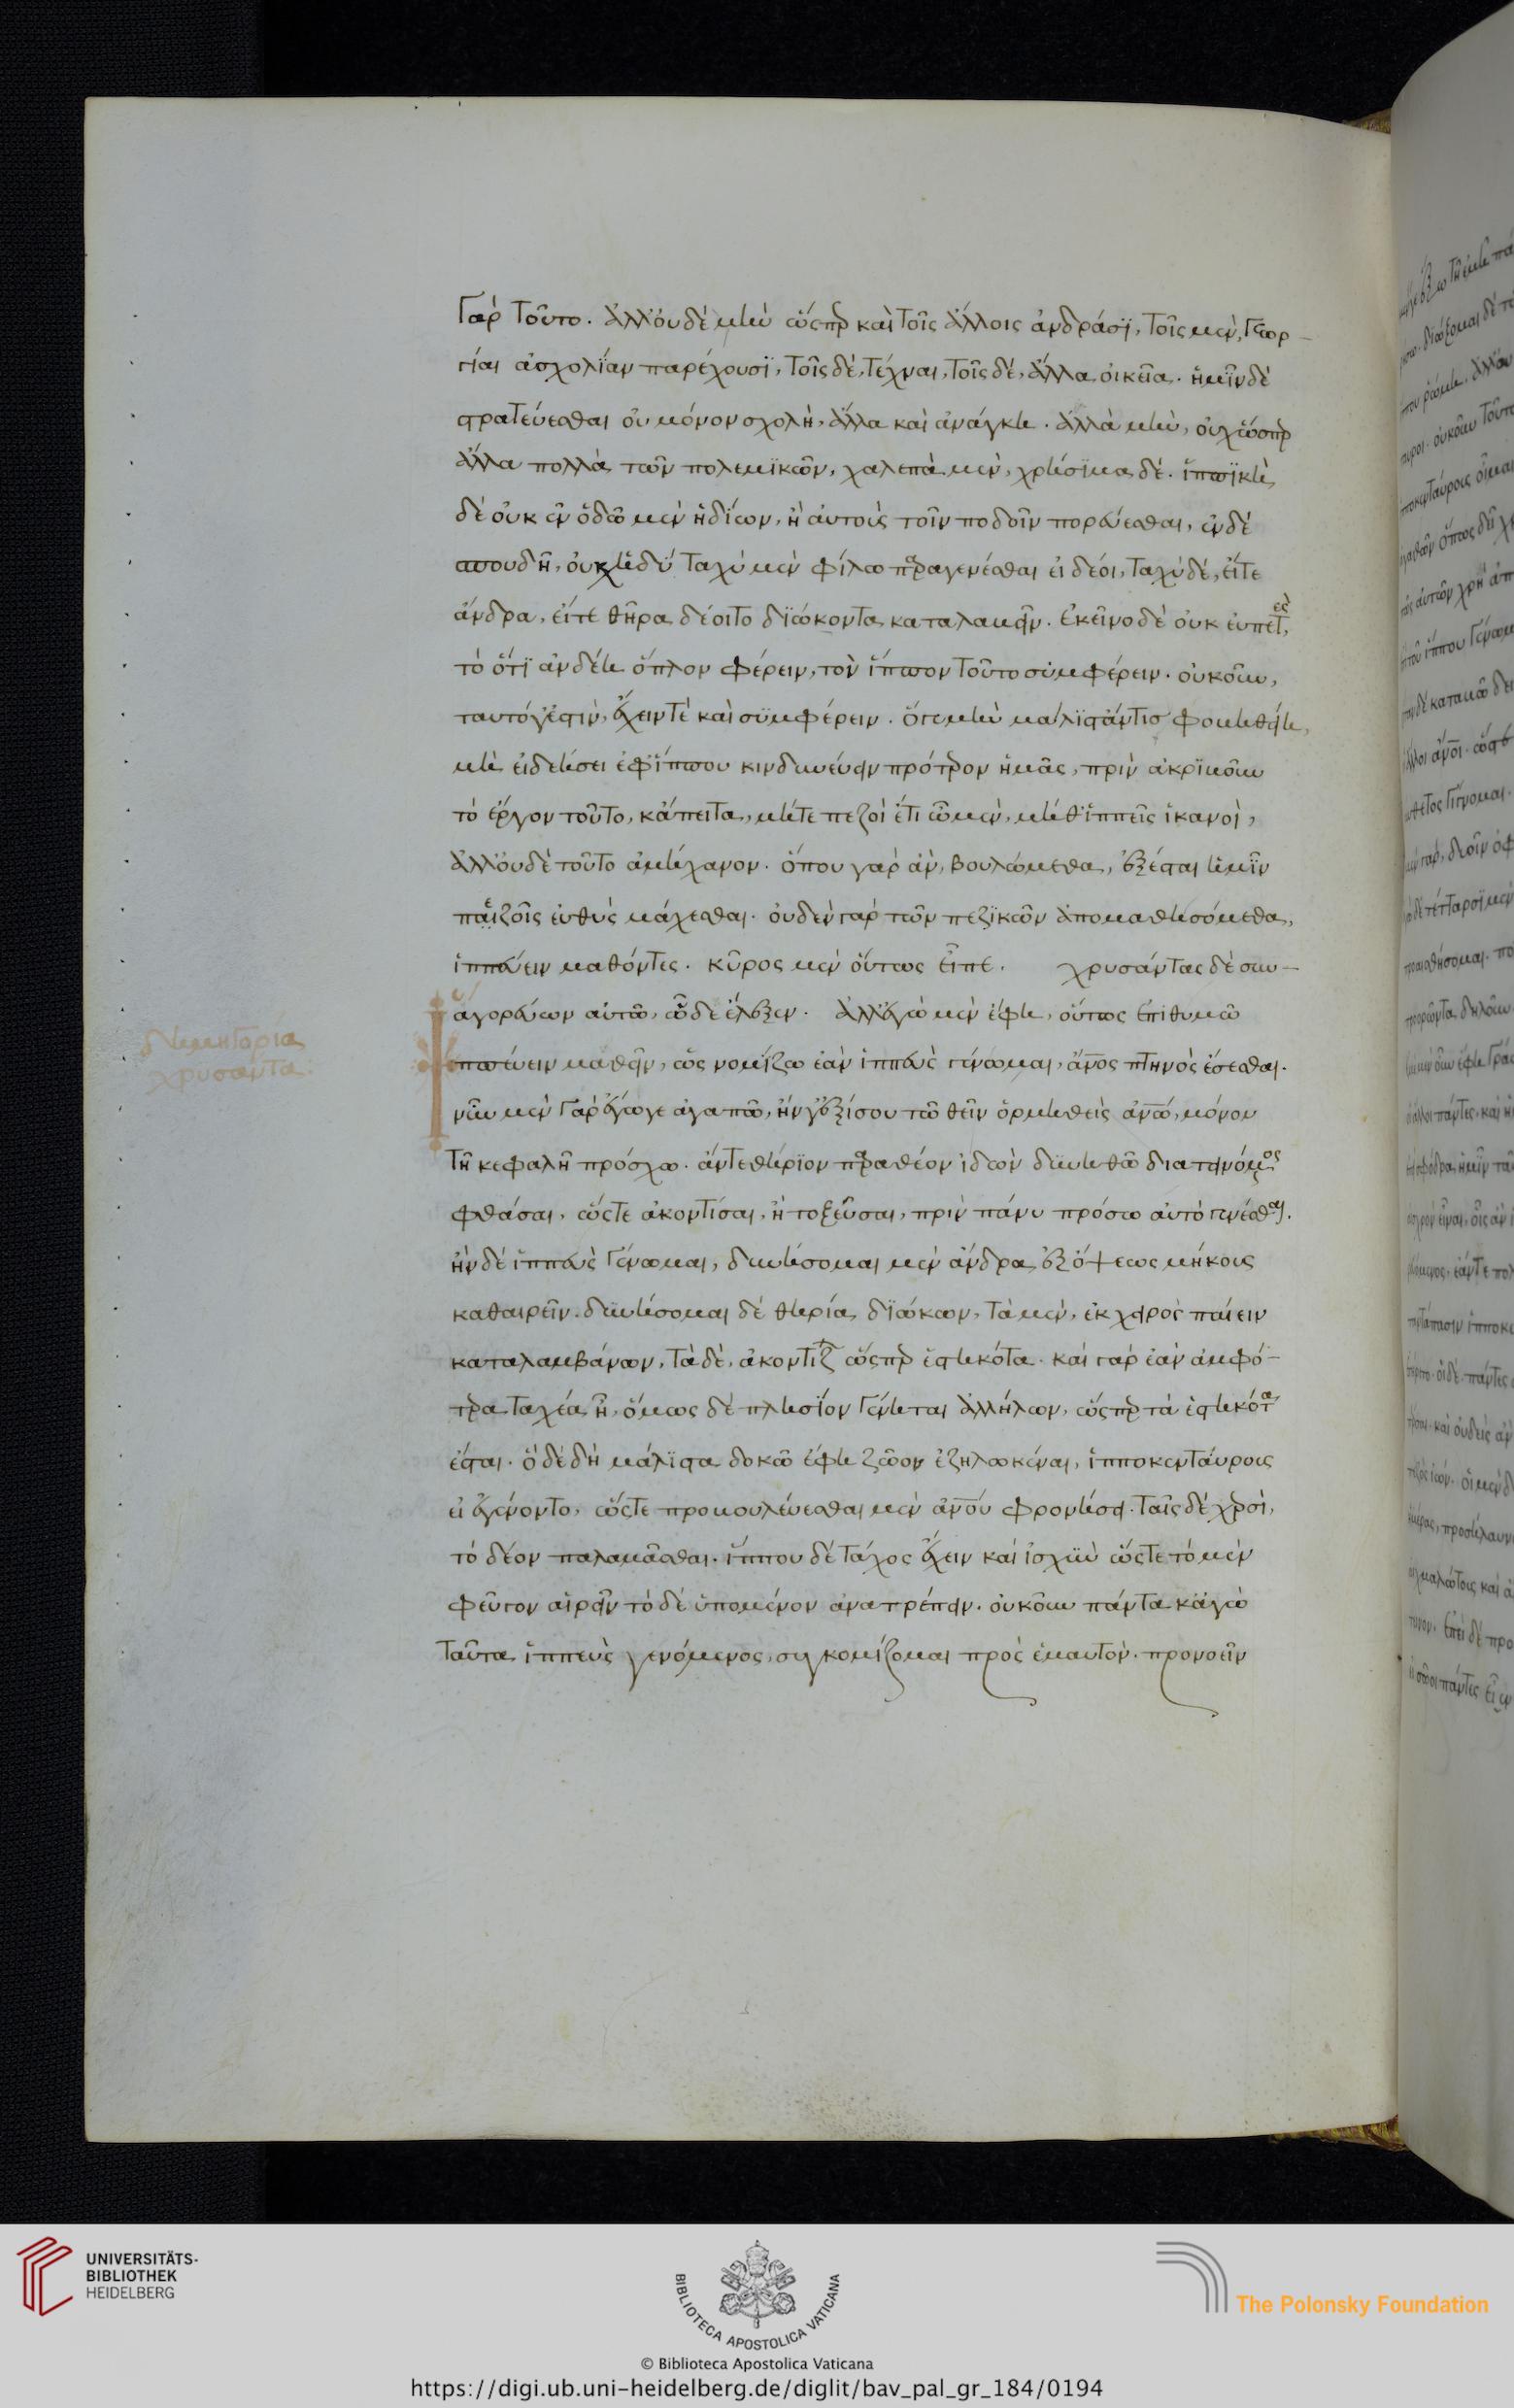 γὰρ τοῦτο. ἀλλ' οὐδὲ μὴν ὥσπερ καὶ τοῖς ἄλλοις ἀνδράσϊ, τοῖς μὲν, γεωρ-
γίαι ἀσχολΐαν παρέχουσϊ, τοῖς δὲ, τέχναι, τοῖς δὲ, ἄλλα οἰκεῖα. ἡμῖν δὲ
στρατεύεσθαι οὐ μόνον σχολὴ, ἀλλα καὶ ἀνάγκη. ἀλλὰ μὴν, οὐχ ὥσπερ
ἄλλα πολλὰ τῶν πολεμϊκῶν, χαλεπὰ μὲν, χρήσϊμα δέ. ἱππϊκὴ
δὲ οὐκ ἐν ὁδῶ μὲν ἡδίων, ἢ αὐτοῖς τοῖν ποδοῖν πορεύεσθαι, ἐν δὲ
σπουδῆ, οὐχ ἡδὺ ταχὺ μὲν φίλω παραγενέσθαι εἰ δέοι, ταχὺ δὲ, εἴτε
ἄνδρα, εἴτε θῆρα δέοιτο διώκοντα καταλαβεῖν. ἐκεῖνο δὲ οὐκ εὐπετὲς,
τὸ ὅτϊ ἂν δέη ὅπλον φέρειν, τὸν ἵππον τοῦτο συμφέρειν. οὐκοῦν,
ταυτό γ' ἐστὶν, ἔχειν τὲ καὶ συμφέρειν. ὅ γε μὴν μάλϊστ' ἄντισ φοβηθείη,
μὴ εἰ δεήσει ἐφ' ἵππου κινδυνεύειν πρότερον ἡμᾶς, πρὶν ἀκριβοῦν
τὸ ἔργον τοῦτο, κἄπειτα, μήτε πεζοὶ ἔτι ὦμεν, μήθ' ἱππεῖς ἱκανοὶ,
ἀλλ' οὐδὲ τοῦτο ἀμήχανον. ὅπου γὰρ ἂν, βουλώμεθα, ἐξέσται ἡμῖν
πεζοῖς εὐθὺς μάχεσθαι. οὐδὲν γὰρ τῶν πεζϊκῶν ἀπομαθησόμεθα,
ἱππεύειν μαθόντες. κῦρος μὲν οὕτως εἶπε. χρυσάντας δὲ συν-
αγορεύων αὐτῶ, ὧδε ἔλεξεν. ἀλλ' ἐγὼ μὲν ἔφη, οὕτως ἐπιθυμῶ
ἱππεύειν μαθεῖν, ὡς νομίζω ἐὰν ἱππεὺς γένωμαι, ἄνος πτηνὸς ἔσεσθαι.
νῦν μὲν γὰρ ἔγωγε ἀγαπῶ, ἤν γ' ἐξίσου τῶ θεῖν ὁρμηθεὶς ἀνω, μόνον
τῆ κεφαλῆ πρόσχω. ἄντε θηρίον παραθέον ἰδὼν δυνηθῶ διατεινόμενος
φθάσαι, ὥστε ἀκοντίσαι, ἢ τοξεῦσαι, πρὶν πάνυ πρόσω αὐτὸ γενέσθαι.
ἢν δὲ ἱππεὺς γένωμαι, δυνήσομαι μὲν ἄνδρα ἐξ ὄψεως μήκους
καθαιρεῖν. δυνήσομαι δὲ θηρία διώκων, τὰ μὲν, ἐκ χειρὸς παίειν
καταλαμβάνων, τὰ δὲ, ἀκοντίζειν ὥσπερ ἑστηκότα. καὶ γὰρ ἐὰν ἀμφό-
τερα ταχέα ἦ, ὅμως δὲ πλησίον γένηται ἀλλήλων, ὥσπερ τὰ ἑστηκότα
ἔσται. ὃ δὲ δὴ μάλϊστα δοκῶ ἔφη ζῶον ἐζηλωκέναι, ἱπποκενταύρους
εἰ ἐγένοντο, ὥστε προβουλεύεσθαι μὲν ἀνου φρονήσει. ταῖς δὲ χερσὶ,
τὸ δέον παλαμᾶσθαι. ἵππου δὲ τάχος ἔχειν καὶ ἰσχὺν ὥστε τὸ μὲν
φεῦγον αἱρεῖν τὸ δὲ ὑπομένον ἀνατρέπειν. οὐκοῦν πάντα κἀγὼ
ταῦτα ἱππεὺς γενόμενος, συγκομίζομαι πρὸς ἐμαυτόν. προνοεῖν
δημηγορία
χρυσάντα:
UNIVERSITÄTS-
BIBLIOTHEK
HEIDELBERG
BIBLIOTECA APOSTOLICA VATICANA
The Polonsky Foundation
© Biblioteca Apostolica Vaticana
https://digi.ub.uni-heidelberg.de/diglit/bav_pal_gr_184/0194